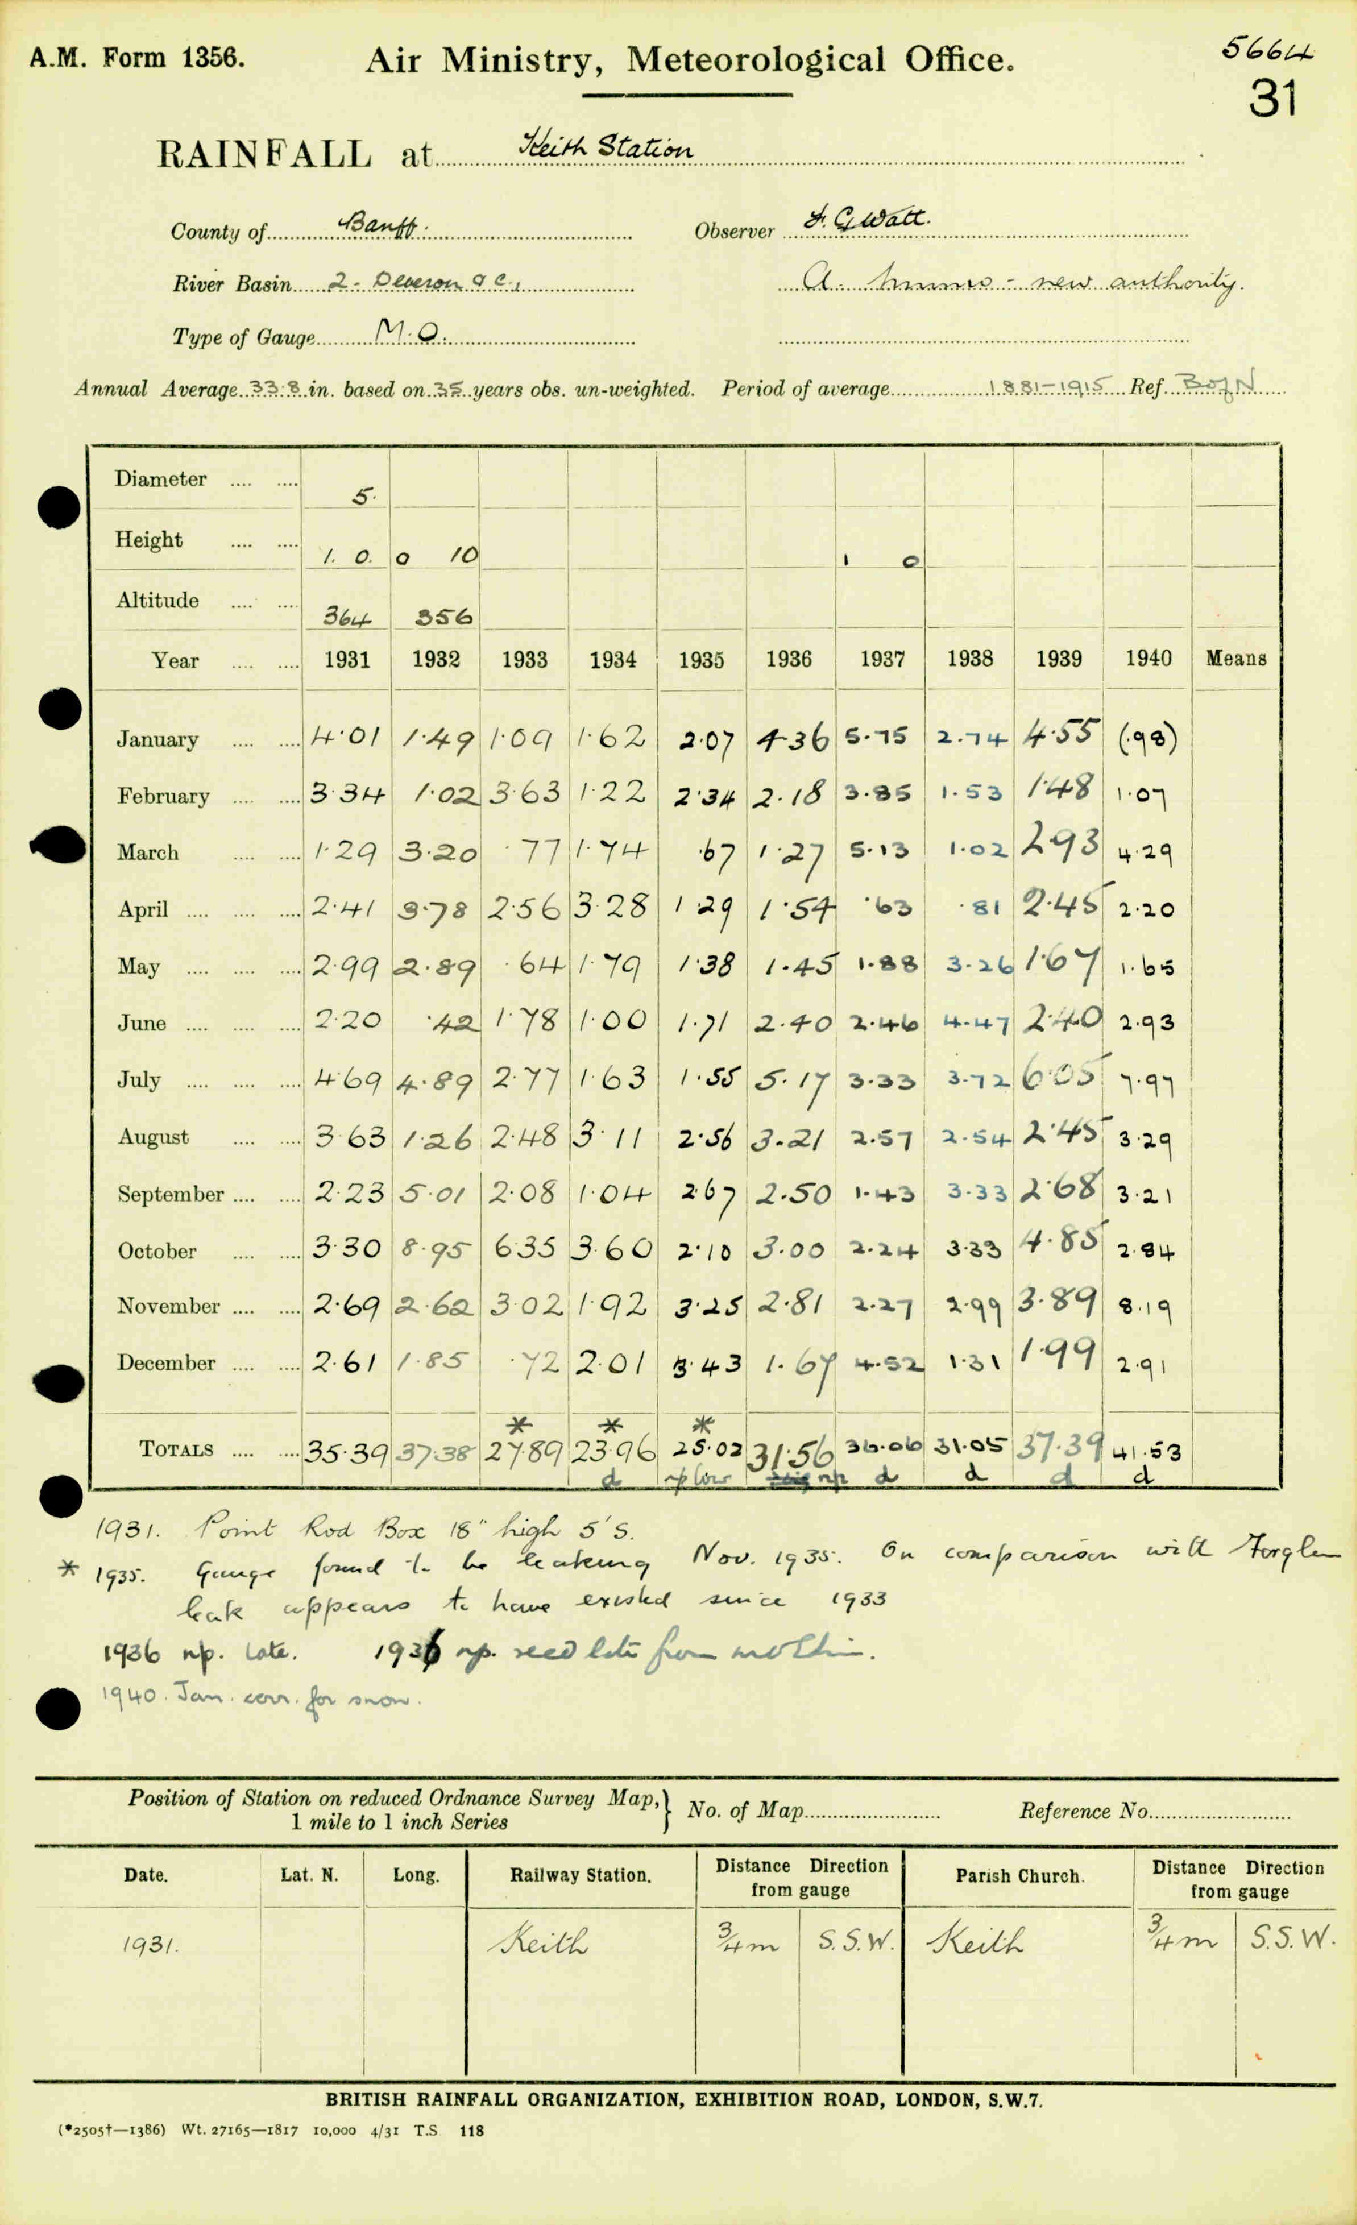 A.M. Form 1356. Air Ministry, Meteorological Office. 5664
31
RAINFALL at Keith Station
County of Banff. Observer F. G. Watt.
River Basin 2. Deveron &c., A. - new authority.
Type of Gauge M.O.
Annual Average 33.8 in. based on 35 years obs. un-weighted. Period of average 1881-1915 Ref. B of N
Diameter 5.
Height 1. 0. 0 10 1 0
Altitude 364 356
Year 1931 1932 1933 1934 1935 1936 1937 1938 1939 1940 Means
January 4.01 1.49 1.09 1.62 2.07 4.36 5.75 2.74 4.55 (.98)
February 3.34 1.02 3.63 1.22 2.34 2.18 3.85 1.53 1.48 1.07
March 1.29 3.20 .77 1.74 .67 1.27 5.13 1.02 2.93 4.29
April 2.41 3.78 2.56 3.28 1.29 1.54 .63 .81 2.45 2.20
May 2.99 2.89 .64 1.79 1.38 1.45 1.88 3.26 1.67 1.65
June 2.20 .42 1.78 1.00 1.71 2.40 2.46 4.47 2.40 2.93
July 4.69 4.89 2.77 1.63 1.55 5.17 3.33 3.72 6.05 7.97
August 3.63 1.26 2.48 3.11 2.56 3.21 2.57 2.54 2.45 3.29
September 2.23 5.01 2.08 1.04 2.67 2.50 1.43 3.33 2.68 3.21
October 3.30 8.95 6.35 3.60 2.10 3.00 2.24 3.33 4.85 2.84
November 2.69 2.62 3.02 1.92 3.25 2.81 2.27 2.99 3.89 8.19
December 2.61 1.85 .72 2.01 3.43 1.67 4.52 1.31 1.99 2.91
* * *
TOTALS 35.39 37.38 27.89 23.96 25.02 31.56 36.06 31.05 37.39 41.53
d np low np d d d d
1931. Point Rod Box 18" high 5' S.
* 1935. Gauge found to be leaking Nov. 1935. On comparison with Forglen
leak appears to have existed since 1933
1936 np. late. 1936 np. recd late from
1940. Jan. corr. for snow.
Position of Station on reduced Ordnance Survey Map, } No. of Map Reference No.
1 mile to 1 inch Series
Date. Lat. N. Long. Railway Station. Distance Direction from gauge Parish Church. Distance Direction from gauge
1931. Keith 3/4 m S.S.W. Keith 3/4 m S.S.W.
BRITISH RAINFALL ORGANIZATION, EXHIBITION ROAD, LONDON, S.W.7.
(*2505†—1386) Wt. 27165—1817 10,000 4/31 T.S. 118